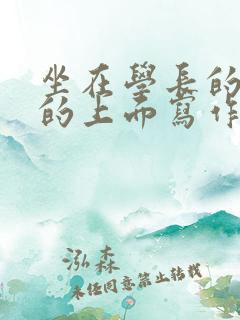 坐在學長的
的上面寫作
泓森
未经同意禁止转载